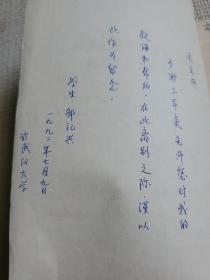 多谢三年来老师您对我的
教海和帮助，在此离别之际，谨以
此作为留念。
学生：郭记兴
一九九二年七月九日
于武汉大学